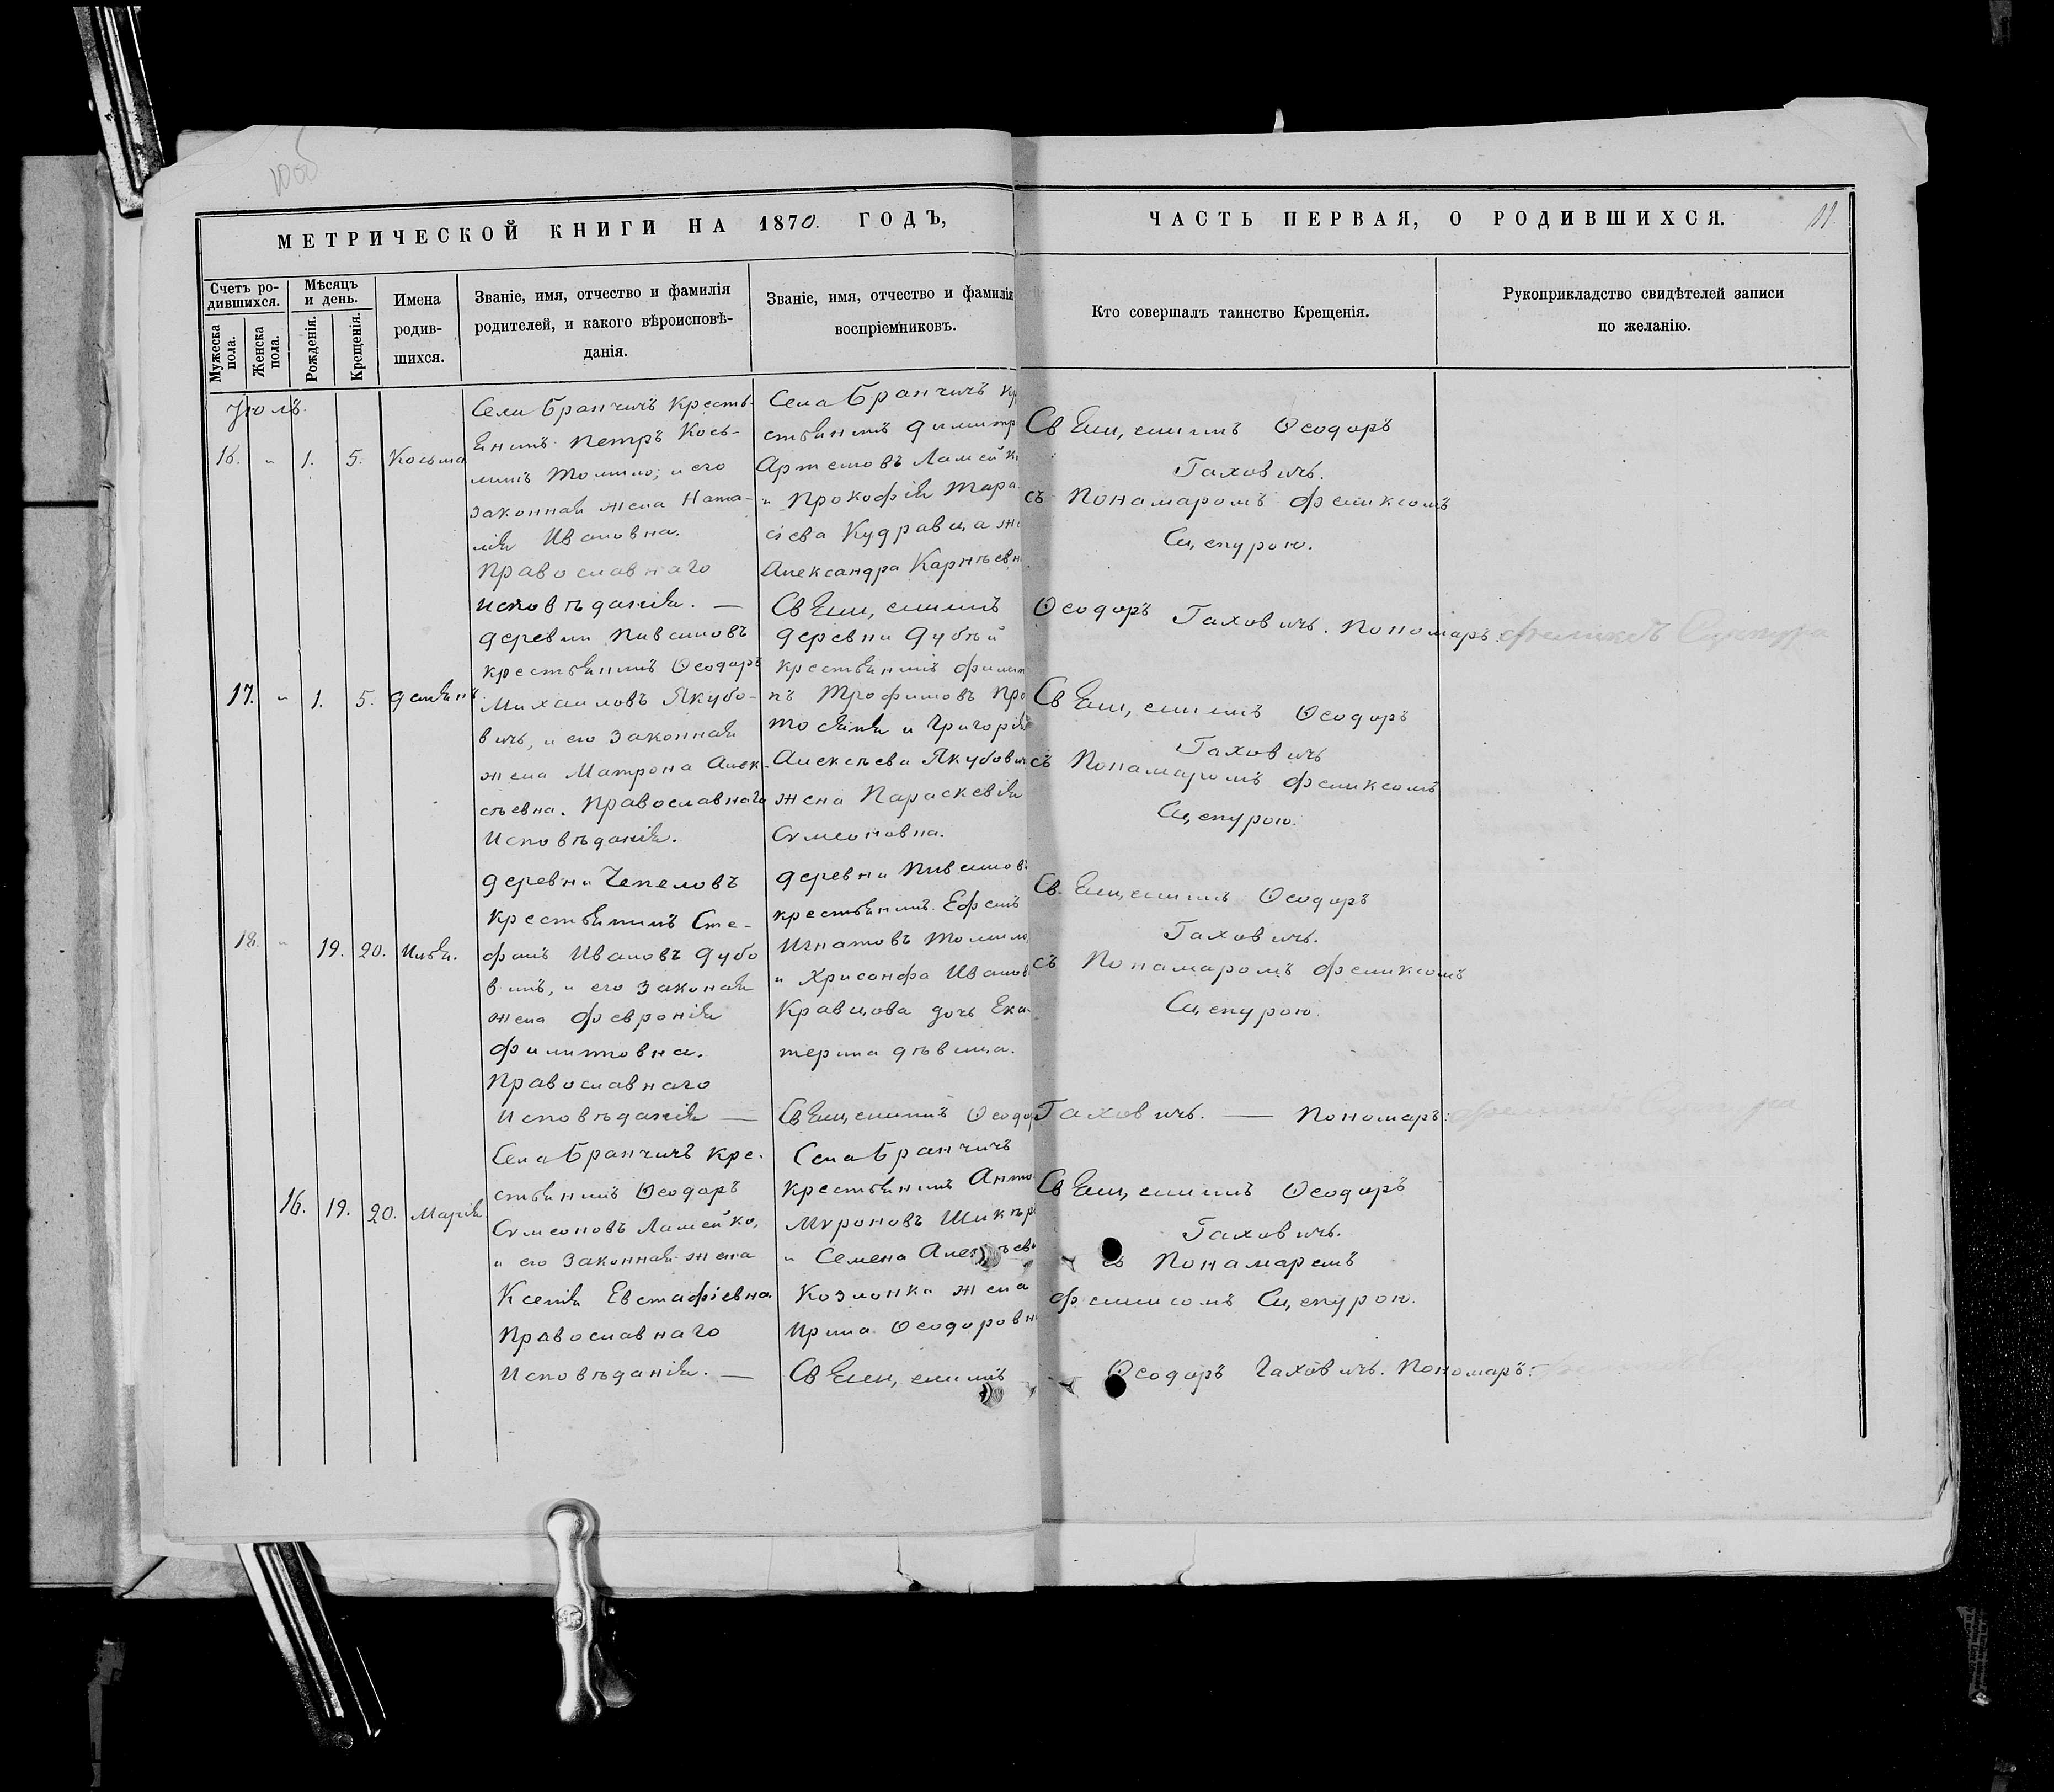 МЕТРИЧЕСКОЙ КНИГИ НА 1870. ГОДЪ,
ЧАСТЬ ПЕРВАЯ, О РОДИВШИХСЯ.
11.
Счетъ ро-
дившихся.
Мужеска
пола.
Женска
пола.
Мѣсяцъ
и день.
Рожденія.
Крещенія.
Имена
родив-
шихся.
Званіе, имя, отчество и фамилія
родителей, и какого вѣроисповѣ-
данія.
Званіе, имя, отчество и фамилія
воспріемниковъ.
Кто совершалъ таинство Крещенія.
Рукоприкладство свидѣтелей записи
по желанію.
Іюль.
16. " 1. 5. Косьма
Села Бранчичъ кресть-
янинъ Петръ Кось-
минъ Томило; и его
законная жена Ната-
лія Ивановна.
Православнаго
исповѣданія. —
Села Бранчичъ кр
стьянинъ Димитр
Артемовъ Ламейк
и Прокофія Тара
сіева Кудравца ж
Александра Карнѣевн
Священникъ Ѳеодоръ
Таховичъ.
съ Пономаромъ Феликсомъ
Сцепурою.
Священникъ Ѳеодоръ Таховичъ. Пономаръ: Феликсъ Сцепура
17. " 1. 5. Деміянъ
деревни Пивашовъ
крестьянинъ Ѳеодоръ
Михаиловъ Якубо-
вичъ, и его законная
жена Матрона Алек-
сѣевна. Православнаго
Исповѣданія.
деревни Дубѣй
крестьянинъ Филип
пъ Трофимовъ Про
тосеня и Григорія
Алексѣева Якубович
жена Параскевія
Сѵмеоновна.
Священникъ Ѳеодоръ
Таховичъ
съ Понамаромъ Феликсомъ
Сцепурою.
18. " 19. 20. Илья.
деревни Чепеловъ
крестьянинъ Сте-
фанъ Ивановъ Дубо
викъ, и его законая
жена Февронія
Филиповна.
Православнаго
Исповѣданія —
деревни Пивашовъ
крестьянинъ Ефемъ
Игнатовъ Томило
и Хрисанфа Иванов
Кравцова дочь Ека-
терина дѣвица.
Священникъ Ѳеодоръ
Таховичъ.
съ Понамаромъ Феликсомъ
Сцепурою.
Священникъ Ѳеодо Таховичъ. — Пономаръ:
16. 19. 20. Марія
Села Бранчичъ кре-
стьянинъ Ѳеодоръ
Сѵмеоновъ Ламейко,
и его законная жена
Ксенія Евстафіевна
Православнаго
Исповѣданія. —
Села Бранчичъ
крестьянинъ Анто
Мѵроновъ Шикѣр
и Семена Алексѣев
Козлонки жена
Ирина Ѳеодоровн
Священникъ Ѳеодоръ
Таховичъ.
съ Понамаремъ
Феликсомъ Сцепурою.
Священникъ Ѳеодоръ Таховичъ. Пономаръ: